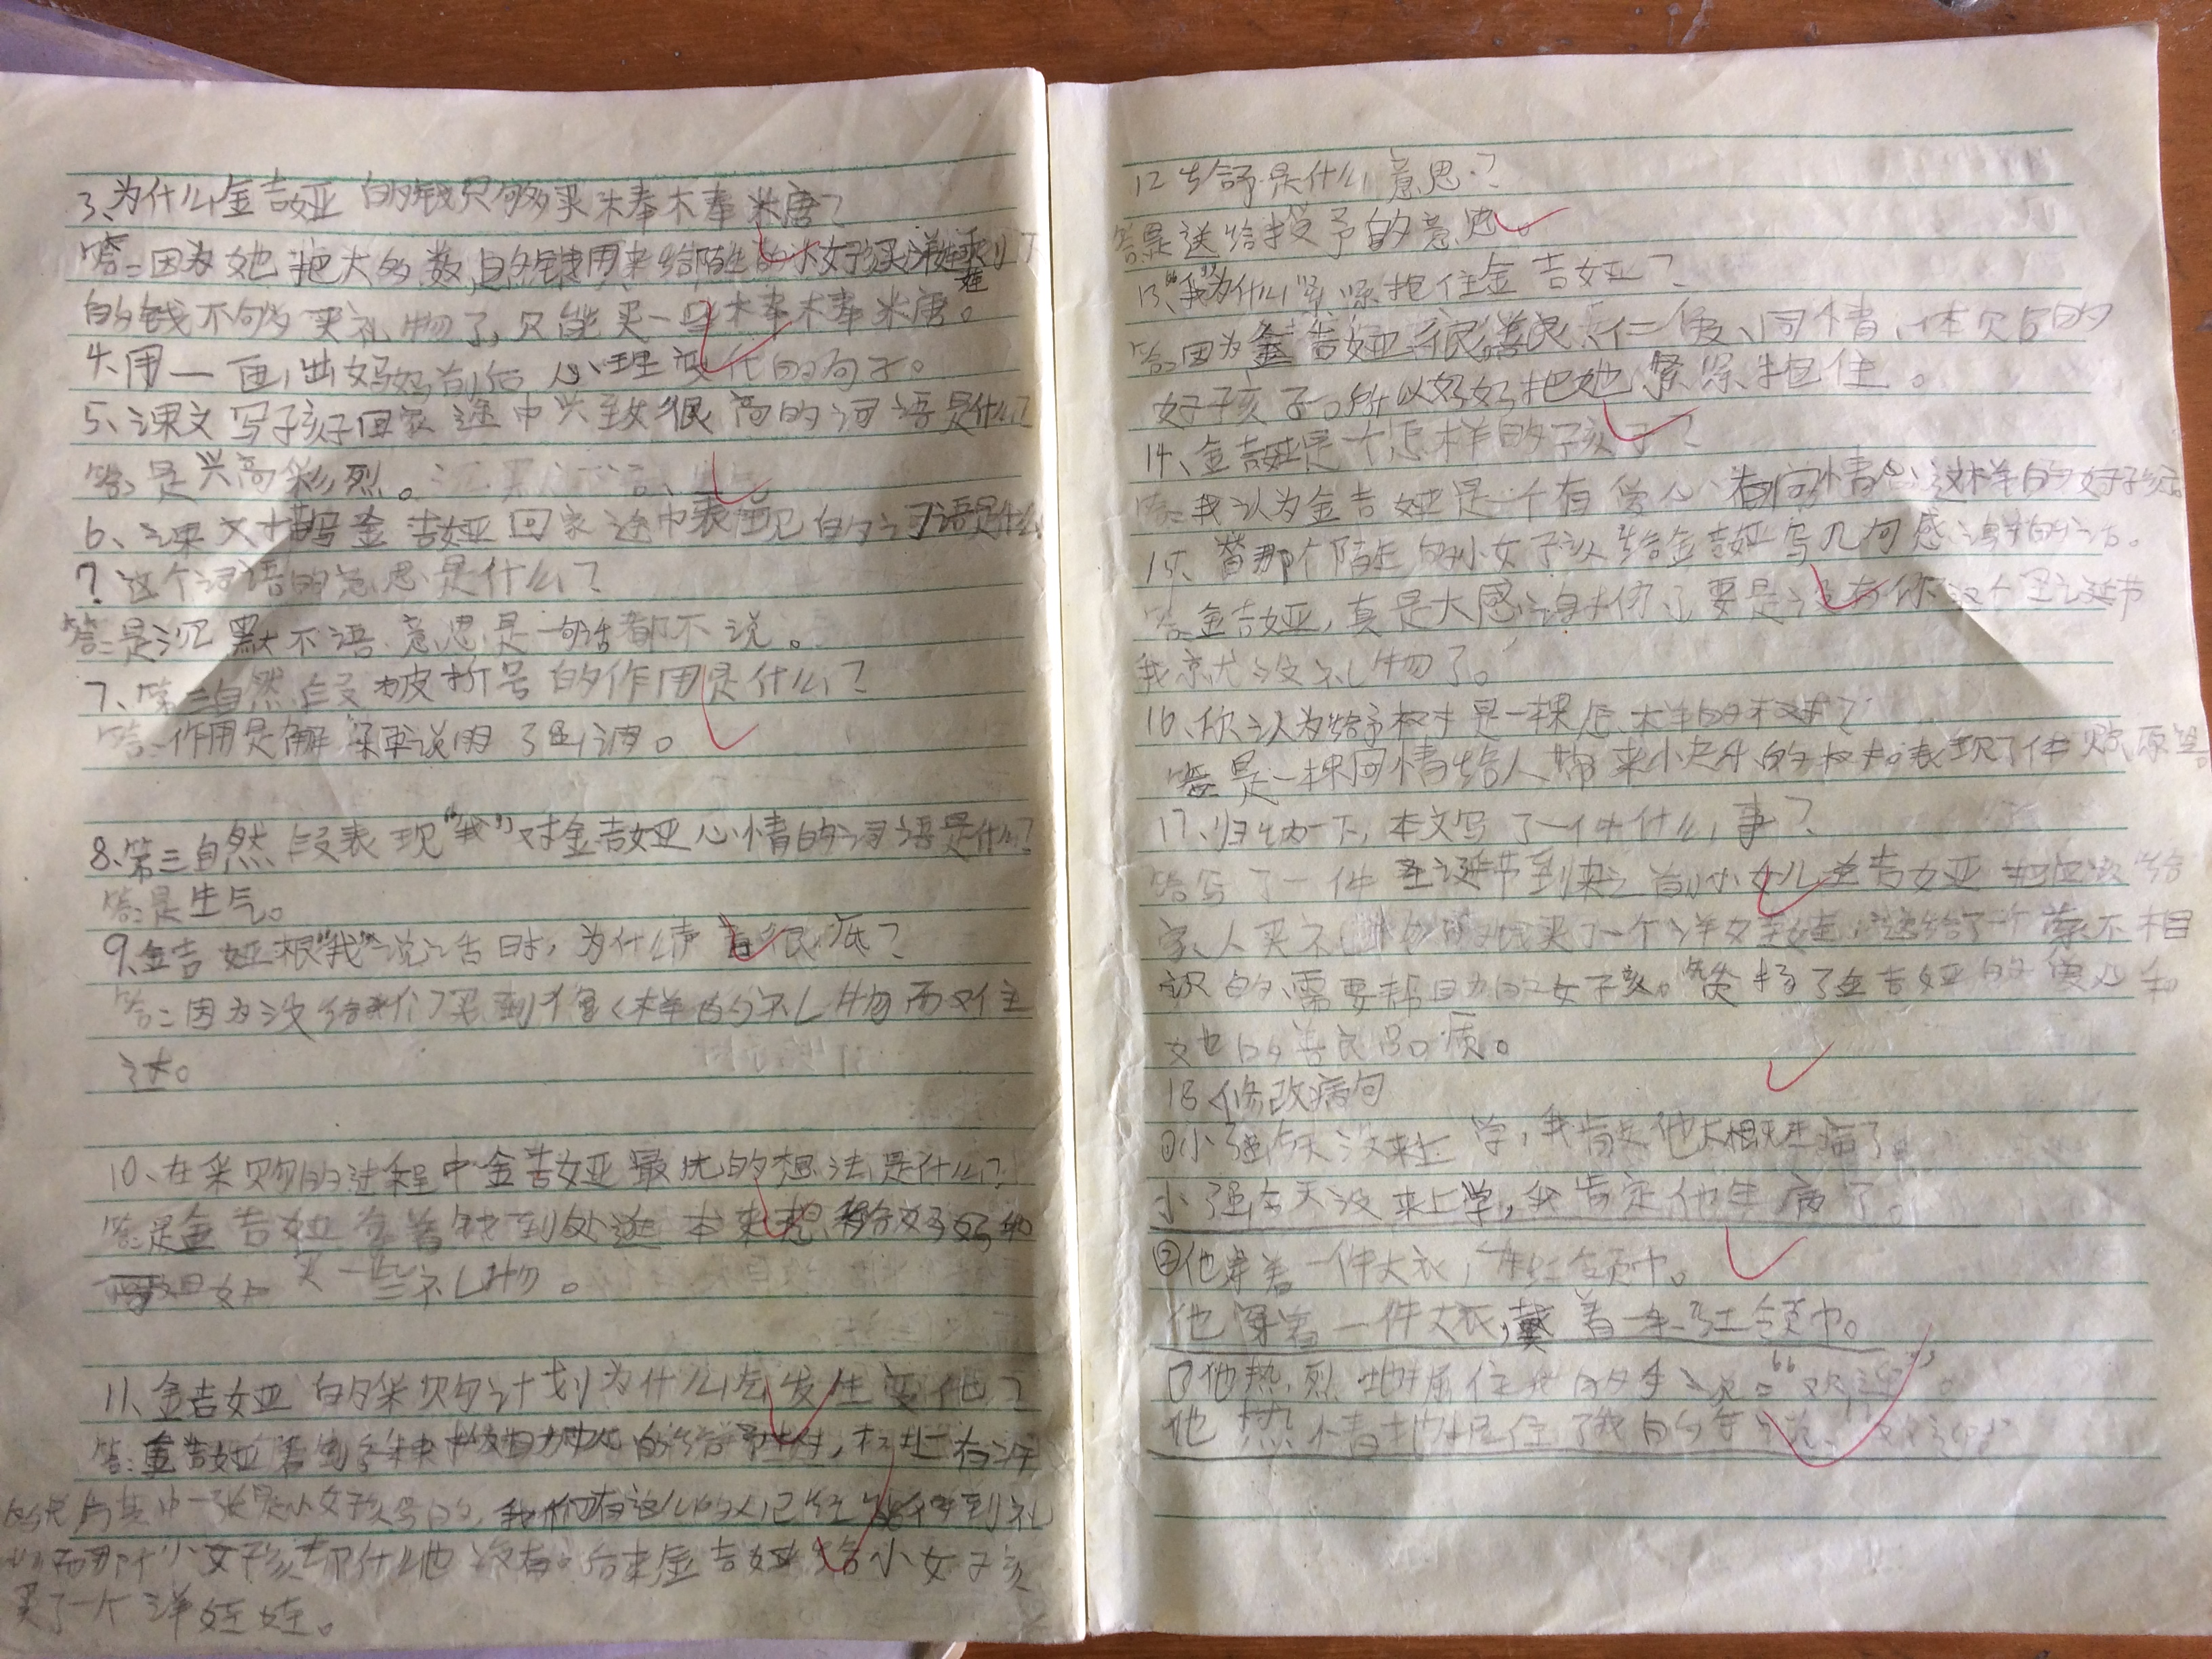 3、为什么金吉娅的钱只够买棒棒糖？
答：因为她把大多数的钱用来给陌生的小女孩买洋娃娃剩下
的钱不够多买礼物了，只能买一些棒棒糖。
4、用一画出妈妈前后心理变化的句子。
5、课文写孩子回家途中兴致很高的词语是什么？
答：是兴高彩烈。
6、课文描写金吉娅回家途中表现的词语是什么
？这个词语的意思是什么？
答：是沉默不语，意思是一句话都不说。
7、第二自然段破折号的作用是什么？
答：作用是解释说明
8、第三自然段表现“我”对金吉娅心情的词语是什么？
答：是生气。
9、金吉娅根“我”说话时，为什么声音很低？
答：因为没给我们买到像样的礼物而对住
10、在采购的过程中金吉娅最优的想法是什么？
答：是金吉娅拿着钱到处逛 本来想给妈妈和
买一些礼物。
11、金吉娅的采购计划为什么会发生变化？
答：金吉娅看到了一棵 的给予树，树上有许
其中一张是小女孩写的，
而那个小女孩却什么也没有。后来金吉娅给小女孩
买了一个洋娃娃。
12 给予是什么意思？
答：是送给授予的意思。
13、“我”为什么紧紧抱住金吉娅？
答：因为金吉娅很善良、仁爱、同情、体贴的
好孩子。所以妈妈把她紧紧抱住。
14、金吉娅是个怎样的孩子？
答：我认为金吉娅是一个有爱心、有同情心这样的好孩子。
15、替那个陌生的小女孩给金吉娅写几句感谢的话。
答：金吉娅，真是太感谢你了要是没有你这个圣诞节
我就没礼物了。
16、你认为给予树是一棵怎样的树？
答：是一棵同情给人带来快乐的树。表现了体贴
17、归纳一下，本文写了一件什么事？
答：写了一件圣诞节到来之前小女儿金吉娅把应该给
家人买礼物的钱买了一个洋娃娃，送给了一个素不相
识的需要帮助的女孩。赞扬了金吉娅的爱心和
她的善良品质。
18、修改病句
①小强今天没来上学，我肯定他大概生病了。
小强今天没来上学，我肯定他生病了。
②他穿着一件大衣，和红领巾。
他穿着一件大衣，戴着一条红领巾。
他热烈地握住我的手、说：“欢迎”。
他热情地握住了我的手说：